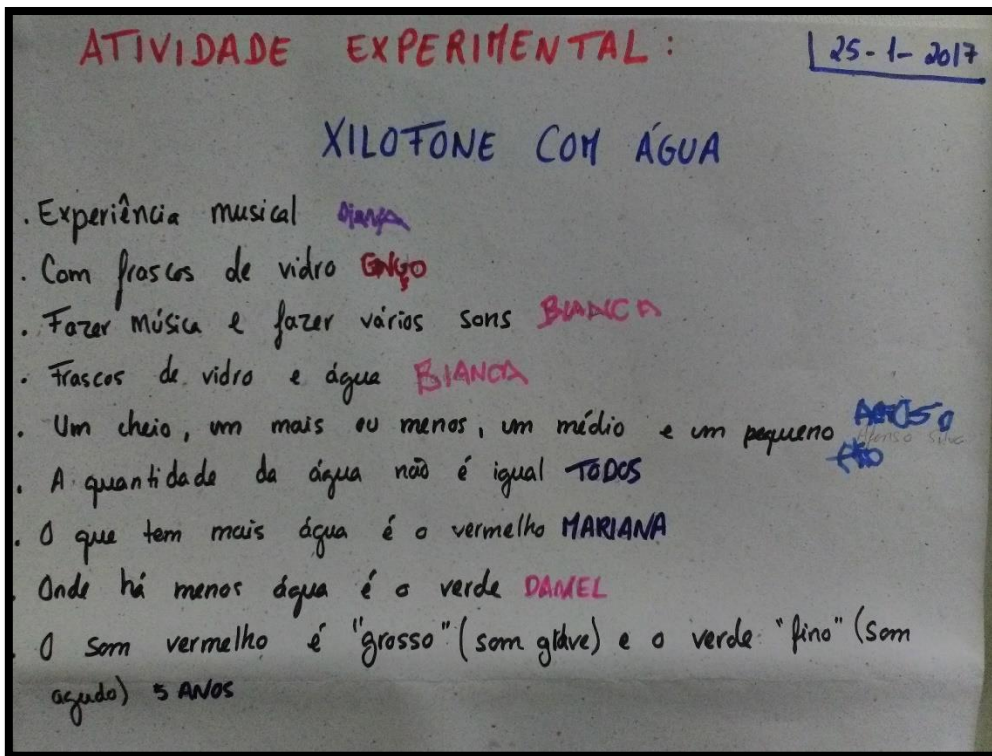 ATIVIDADE EXPERIMENTAL:
25-1-2017
XILOFONE COM ÁGUA
. Experiência musical
. Com frascos de vidro ENÇO
. Fazer música e fazer vários sons BIANCA
. Frascos de vidro e água BIANCA
. Um cheio, um mais ou menos, um médio e um pequeno
Afonso Silva
. A quantidade da água não é igual TODOS
. O que tem mais água é o vermelho MARIANA
. Onde há menos água é o verde DANIEL
. O som vermelho é "grosso" (som grave) e o verde "fino" (som
agudo) 5 ANOS